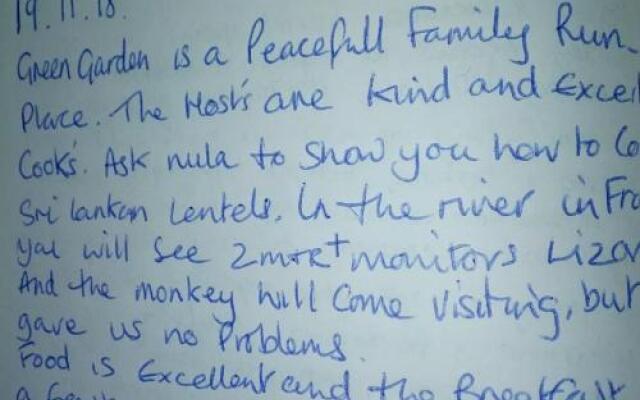 19.11.18.
Green Garden is a Peacefull Family Run
Place. The Host's are kind and Excel
Cook's. Ask nula to Show you how to Co
Sri lankan Lentels. In the river in Fro
you will See 2mtr+ monitors Lizar
And the monkey will Come visiting, but
gave us no Problems.
Food is Excellent and the Breakfast
a